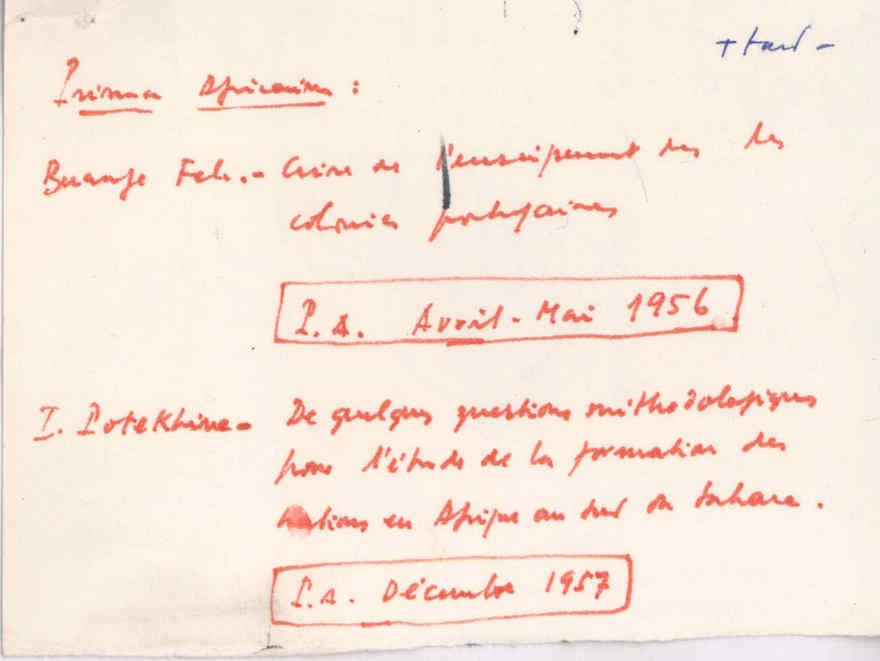 + tard -
Présence Africaine :
Buanga Fele.- Crise de l'enseignement dans les
colonies portugaises
P.A. Avril - Mai 1956
I. Potekhine - De quelques questions méthodologiques
pour l'étude de la formation des
nations en Afrique au Sud du Sahara.
P.A. Décembre 1957